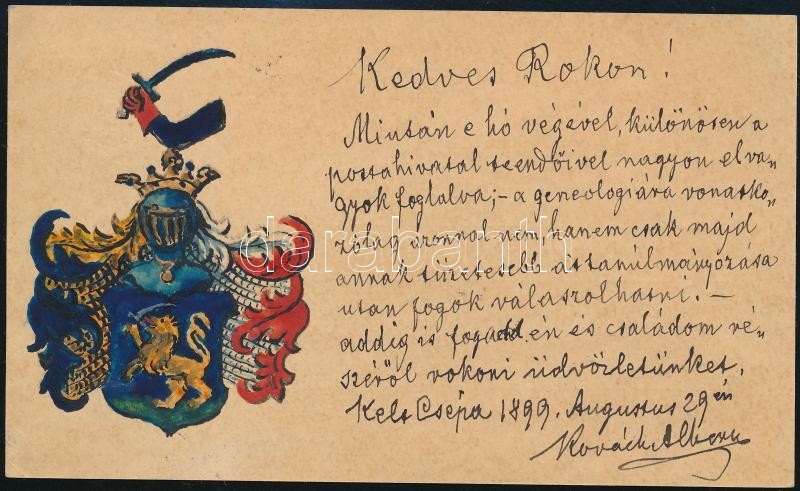 Kedves Rokon!
Miután e hó végével, különösen a
postahivatal teendőivel nagyon elva-
gyok foglalva; – a geneologiára vonatko-
zólag azonnal nem, hanem csak majd
annak tüzetesebb áttanúlmányozása
utan fogok válaszolhatni. –
addig is fogadd én és családom ré-
széről rokoni üdvözletünket.
Kelt Csépa 1899. Augustus 29én
Kovách Albert
darabanth